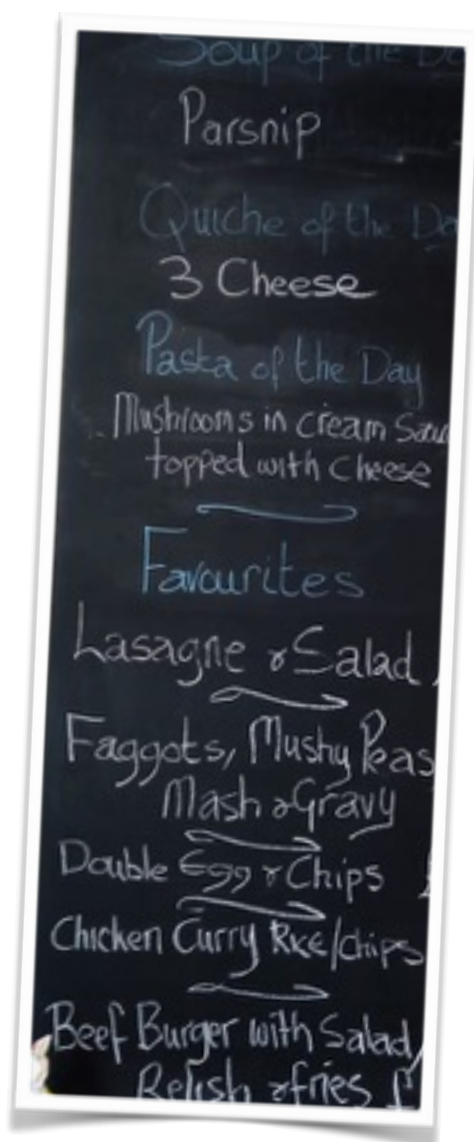 Soup of the Da
Parsnip
Quiche of the Da
3 Cheese
Pasta of the Day
Mushrooms in Cream Sauc
topped with Cheese
Favourites
Lasagne & Salad
Faggots, Mushy Peas
Mash & Gravy
Double Egg & Chips £
Chicken Curry Rice/Chips
Beef Burger with Salad,
Relish & fries £